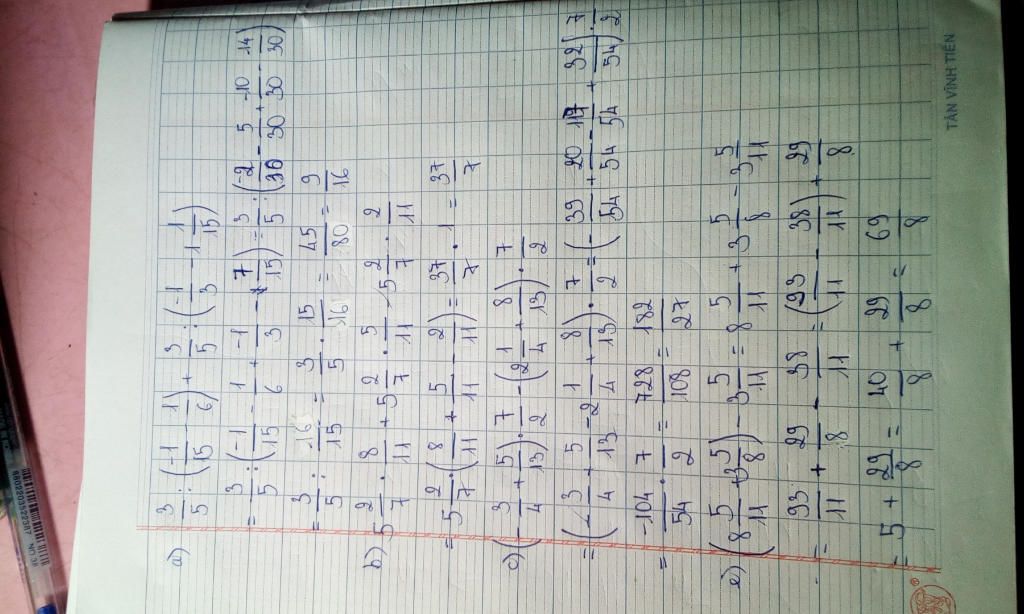 a) 3/5 : (-1/15 - 1/6) + 3/5 : (-1/3 - 1 1/15)
= 3/5 : (-1/15 - 1/6 + -1/3 - 7/15) = 3/5 : (-2/30 - 5/30 + -10/30 - 14/30)
= 3/5 : 16/15 = 3/5 . 15/16 = 45/80 = 9/16
b) 5 2/7 . 8/11 + 5 2/7 . 5/11 - 5 2/7 . 2/11
= 5 2/7 . (8/11 + 5/11 - 2/11) = 37/7 . 1 = 37/7
c) (3/4 + 5/13) . 7/2 - (2 1/4 + 8/13) . 7/2
= (3/4 + 5/13 - 2 1/4 + 8/13) . 7/2 = (- 39/54 + 20/54 - 117/54 + 32/54) . 7/2
= -104/54 . 7/2 = 728/108 = 182/27
e) (8 5/11 + 3 5/8) - 3 5/11 = 8 5/11 + 3 5/8 - 3 5/11
= 93/11 + 29/8 - 38/11 = (93/11 - 38/11) + 29/8
= 5 + 29/8 = 40/8 + 29/8 = 69/8
TÂN VĨNH TIẾN
6802203522387
NO:38